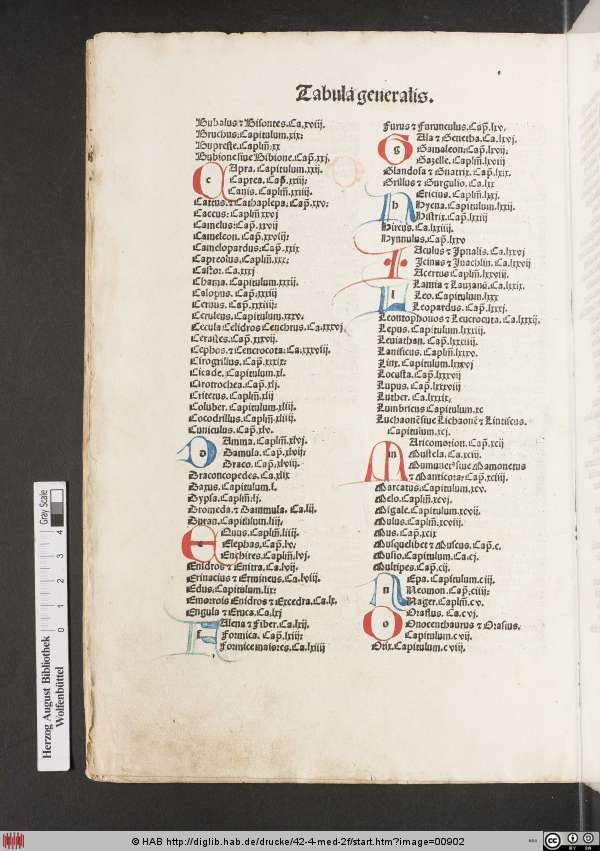 Tabula generalis.
Bubalus ⁊ Bisontes. Ca. xviij.
Bruchus: Capitulum. xix:
Bupreste. Caplm̄. xx
Bybione siue Bibione. Cap̄. xxj.
c Apra. Capitulum. xxij.
Caprea. Cap̄. xxiij:
Canis. Caplm̄. xxiiij.
Cattus. ⁊ Cathaplepa. Cap̄. xxv:
Caccus: Caplm̄ xxvj
Camelus: Cap̄. xxvij
Cameleon. Cap̄. xxviij:
Camelopardus: Cap̄. xxix
Capreolus. Caplm̄. xxx:
Castor. Ca. xxxj
Chama. Capitulum. xxxij.
Calopus. Cap̄: xxxiij
Ceruus. Cap̄. xxxiiij:
Ceruleus. Capitulum. xxxv.
Cecula Celidros Cenchrus. Ca: xxxvj
Cerastes. Cap̄. xxxvij.
Cephos. ⁊ Cencrocota: Ca. xxxviij.
Cirogrilius. Cap̄. xxxix:
Cicade. Capitulum. xl.
Cirotrochea. Cap̄. xlj.
Cricetus. Caplm̄. xlij
Coluber. Capitulum. xliij.
Cocodrillus. Caplm̄. xliiij
Cuniculus. Cap̄. xlv.
D Amma. Caplm̄. xlvj.
Damula. Cap̄. xlvij:
Draco. Cap̄. xlviij.
Draconcopedes. Ca. xlix
Daxus. Capitulum. l.
Dypsa. Caplm̄: lj.
Dromeda. ⁊ Dammula. Ca. lij.
Duran. Capitulum. liij.
e Quus. Caplm̄. liiij.
Elephas. Cap̄. lv.
Enchires. Caplm̄. lvj.
Enidros ⁊ Enitra. Ca. lvij.
Erinacius ⁊ Ermineus. Ca. lviij.
Edus: Capitulum. lix:
Emorrois Enidros ⁊ Excedra. Ca. lx.
Engula ⁊ Eruca. Ca. lxj
f Alena ⁊ Fiber. Ca. lxij.
Formica. Cap̄. lxiij:
Formice maiores. Ca. lxiiij
Furus ⁊ Furunculus. Cap̄. lxv.
g Ala ⁊ Genetha. Ca. lxvj.
Gamaleon: Cap̄. lxvij:
Gazelle. Caplm̄. lxviij
Glandosa ⁊ Gnatrix. Cap̄. lxix.
Grillus ⁊ Gurgulio. Ca. lxx
h Ericius. Caplm̄. lxxj.
Hyena. Capitulum. lxxij.
Histrix. Cap̄. lxxiij
Hircus. Ca. lxxiiij.
Hynnulus. Cap̄. lxxv
I Aculus ⁊ Ipnalis. Ca. lxxvj
Icinus ⁊ Inachlin. Ca. lxxvij
Acertus Caplm̄. lxxviij.
Lamia ⁊ Lauzanū. Ca. lxxix.
l Leo. Capitulum. lxxx
Leopardus. Cap̄. lxxxj.
Leontophonos ⁊ Leucrocuta. Ca. lxxxij.
Lepus. Capitulum. lxxxiij.
Leuiathan. Cap̄. lxxxiiij.
Lanificus. Caplm̄. lxxxv.
Linx. Capitulum. lxxxvj
Locusta. Cap̄. lxxxvij
Lupus. Cap̄. lxxxviij
Luther. Ca. lxxxix.
Lumbricus Capitulum. xc
Luchaonē siue Lichaonē ⁊ Lintiscus.
Capitulum. xcj.
m Aricomorion. Cap̄. xcij
Mustela. Ca. xciij.
Mumunet siue Mamonetus
⁊ Manticora: Cap̄. xciiij.
Marcatus. Capitulum. xcv.
Melo. Caplm̄. xcvj.
Migale. Capitulum. xcvij.
Mulus. Caplm̄. xcviij.
Mus. Cap̄. xcix
Musquelibet ⁊ Muscus. Cap̄. c.
Musio. Capitulum. Ca. cj.
Multipes. Cap̄. cij.
n Epa. Capitulum. c iij.
Neomon. Cap̄: ciiij:
Nager. Caplm̄. c v.
o Oraflus. Ca. c vj.
Onocenthaurus ⁊ Orasius.
Capitulum. c vij.
Orix. Capitulum. c viij.
Herzog August Bibliothek
Wolfenbüttel
Gray Scale
0 1 2 3 4
© HAB http://diglib.hab.de/drucke/42-4-med-2f/start.htm?image=00902
cc BY SA